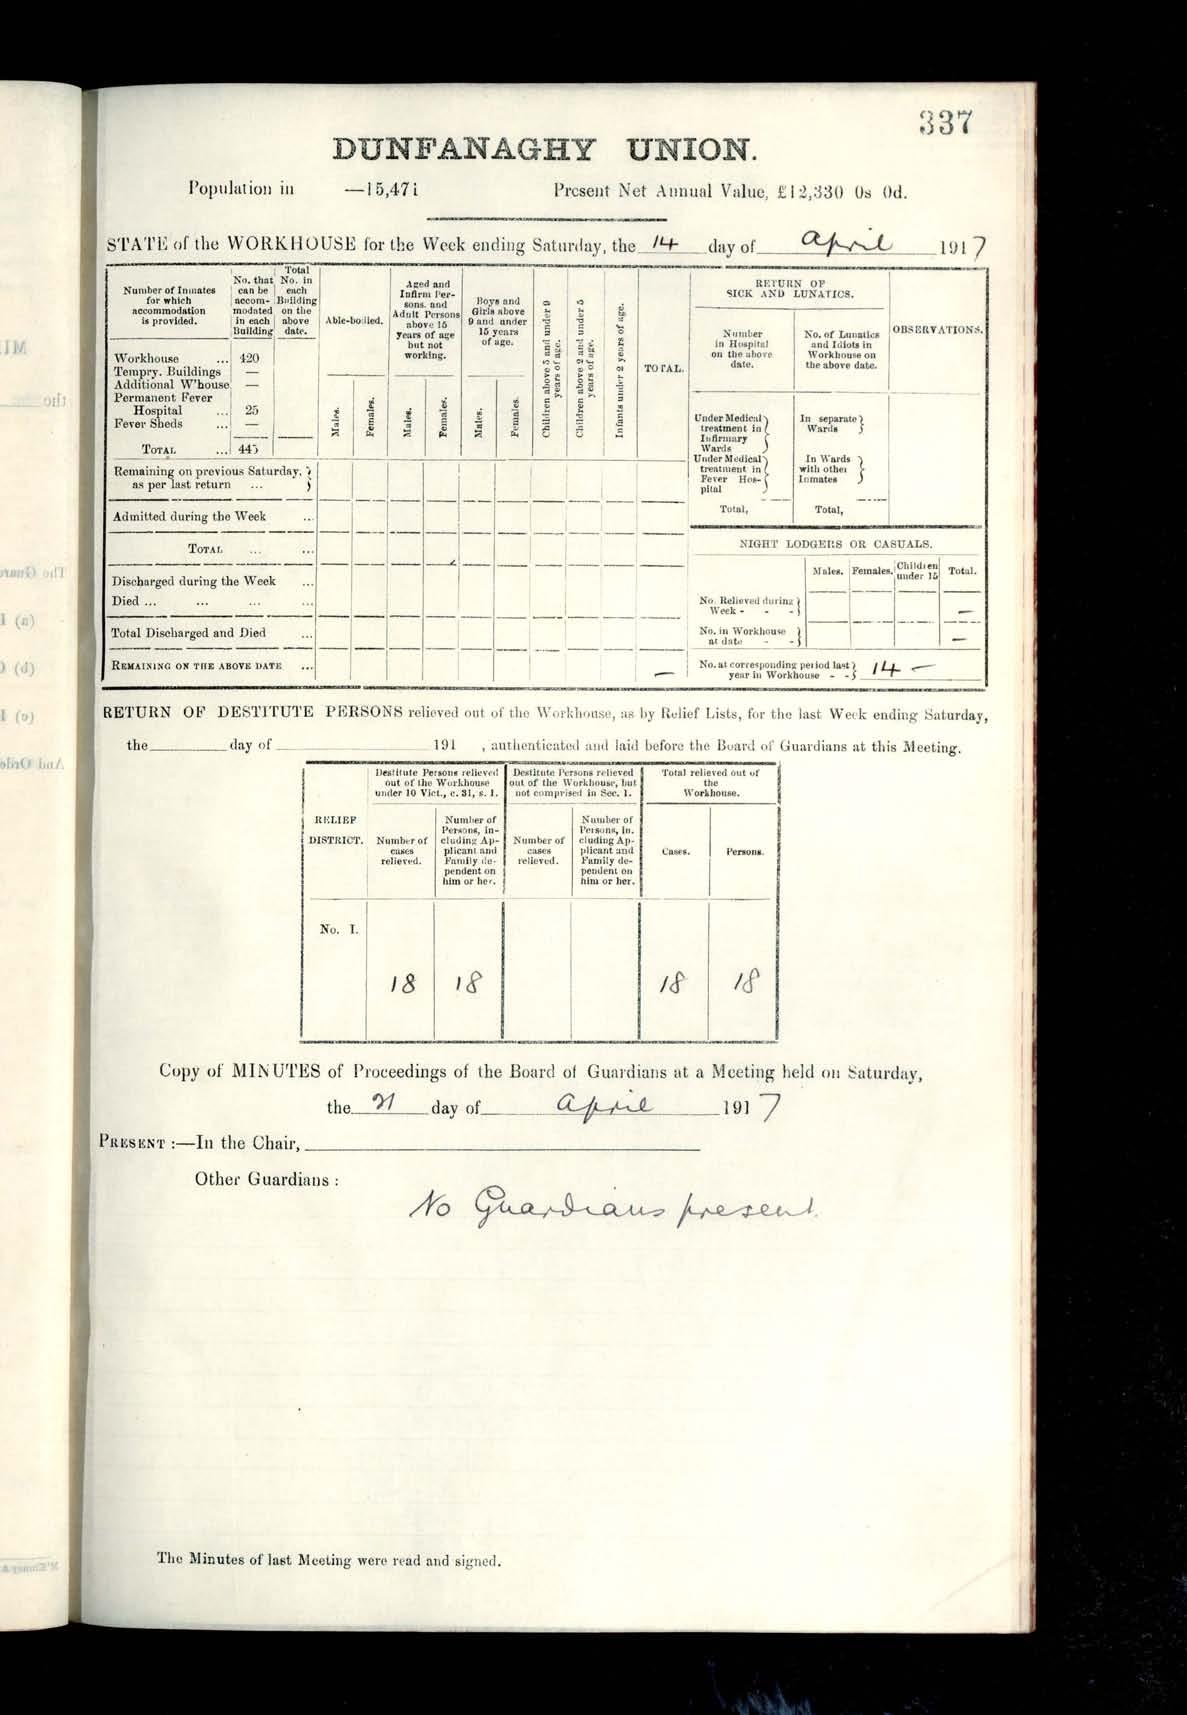 337
DUNFANAGHY UNION.
Population in —15,471 Present Net Annual Value, £12,330 0s 0d.
STATE of the WORKHOUSE for the Week ending Saturday, the 14 day of April 1917
Number of Inmates for which accommodation is provided.
No. that can be accommodated in each Building
Total No. in each Building on the above date.
Able-bodied.
Aged and Infirm Persons, and Adult Persons above 15 years of age but not working.
Boys and Girls above 9 and under 15 years of age.
Children above 5 and under 9 years of age.
Children above 2 and under 5 years of age.
Infants under 2 years of age.
TOTAL.
Males. Females. Males. Females. Males. Females.
Workhouse ... 420
Tempry. Buildings —
Additional W'house —
Permanent Fever
Hospital ... 25
Fever Sheds ... —
TOTAL ... 445
Remaining on previous Saturday,
as per last return ...
Admitted during the Week ...
TOTAL ... ...
Discharged during the Week ...
Died ... ... ... ...
Total Discharged and Died ...
REMAINING ON THE ABOVE DATE ... —
RETURN OF
SICK AND LUNATICS.
Number in Hospital on the above date.
No. of Lunatics and Idiots in Workhouse on the above date.
OBSERVATIONS.
Under Medical treatment in Infirmary Wards
In separate Wards
Under Medical treatment in Fever Hospital
In Wards with other Inmates
Total, Total,
NIGHT LODGERS OR CASUALS.
Males. Females. Children under 15 Total.
No. Relieved during
Week - - - —
No. in Workhouse
at date - - —
No. at corresponding period last
year in Workhouse - - 14 —
RETURN OF DESTITUTE PERSONS relieved out of the Workhouse, as by Relief Lists, for the last Week ending Saturday,
the day of 191 , authenticated and laid before the Board of Guardians at this Meeting.
RELIEF
DISTRICT.
Destitute Persons relieved
out of the Workhouse
under 10 Vict., c. 31, s. 1.
Destitute Persons relieved
out of the Workhouse, but
not comprised in Sec. 1.
Total relieved out of
the
Workhouse.
Number of cases relieved.
Number of Persons, including Applicant and Family dependent on him or her.
Number of cases relieved.
Number of Persons, including Applicant and Family dependent on him or her.
Cases.
Persons.
No. I.
18 18 18 18
Copy of MINUTES of Proceedings of the Board of Guardians at a Meeting held on Saturday,
the 21 day of April 1917
PRESENT :—In the Chair,
Other Guardians :
No Guardians present.
The Minutes of last Meeting were read and signed.